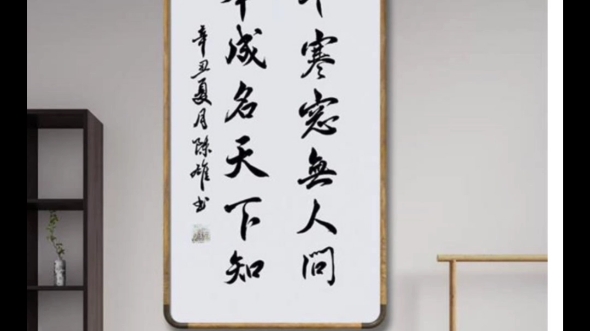 寒窓無人問
成名天下知
辛丑夏月陈雄书